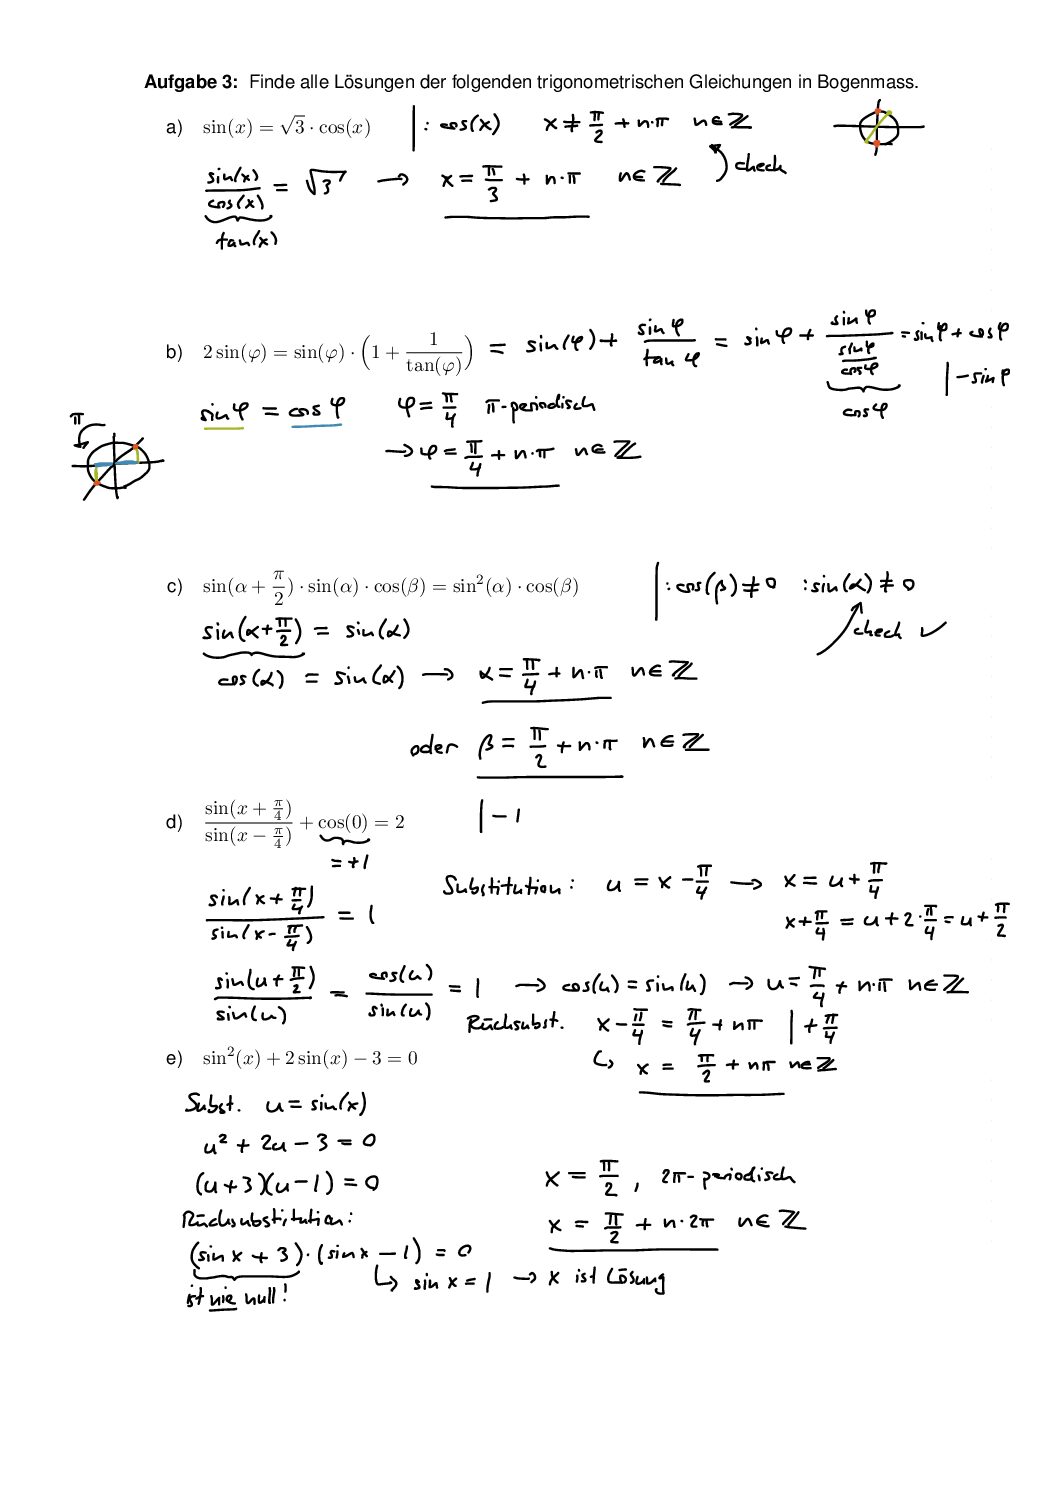 Aufgabe 3: Finde alle Lösungen der folgenden trigonometrischen Gleichungen in Bogenmass.
a) sin(x) = √3 · cos(x) | : cos(x) x ≠ π/2 + n·π n∈ℤ
sin(x)/cos(x) = √3 → x = π/3 + n·π n∈ℤ check
tan(x)
b) 2 sin(φ) = sin(φ) · (1 + 1/tan(φ)) = sin(φ) + sin φ/tan φ = sin φ + sin φ/(sin φ/cos φ) = sin φ + cos φ
cos φ | − sin φ
sin φ = cos φ φ = π/4 π-periodisch
π
→ φ = π/4 + n·π n∈ℤ
c) sin(α + π/2) · sin(α) · cos(β) = sin²(α) · cos(β) | : cos(β) ≠ 0 : sin(α) ≠ 0
sin(α+π/2) = sin(α) check ✓
cos(α) = sin(α) → α = π/4 + n·π n∈ℤ
oder β = π/2 + n·π n∈ℤ
d) sin(x + π/4)/sin(x − π/4) + cos(0) = 2 | − 1
= +1
sin(x + π/4)/sin(x − π/4) = 1 Substitution: u = x − π/4 → x = u + π/4
x + π/4 = u + 2·π/4 = u + π/2
sin(u + π/2)/sin(u) = cos(u)/sin(u) = 1 → cos(u) = sin(u) → u = π/4 + n·π n∈ℤ
Rücksubst. x − π/4 = π/4 + nπ | + π/4
↳ x = π/2 + nπ n∈ℤ
e) sin²(x) + 2 sin(x) − 3 = 0
Subst. u = sin(x)
u² + 2u − 3 = 0
(u+3)(u−1) = 0
x = π/2 , 2π-periodisch
Rücksubstitution:
x = π/2 + n·2π n∈ℤ
(sin x + 3)·(sin x − 1) = 0
↳ sin x = 1 → x ist Lösung
ist nie null!